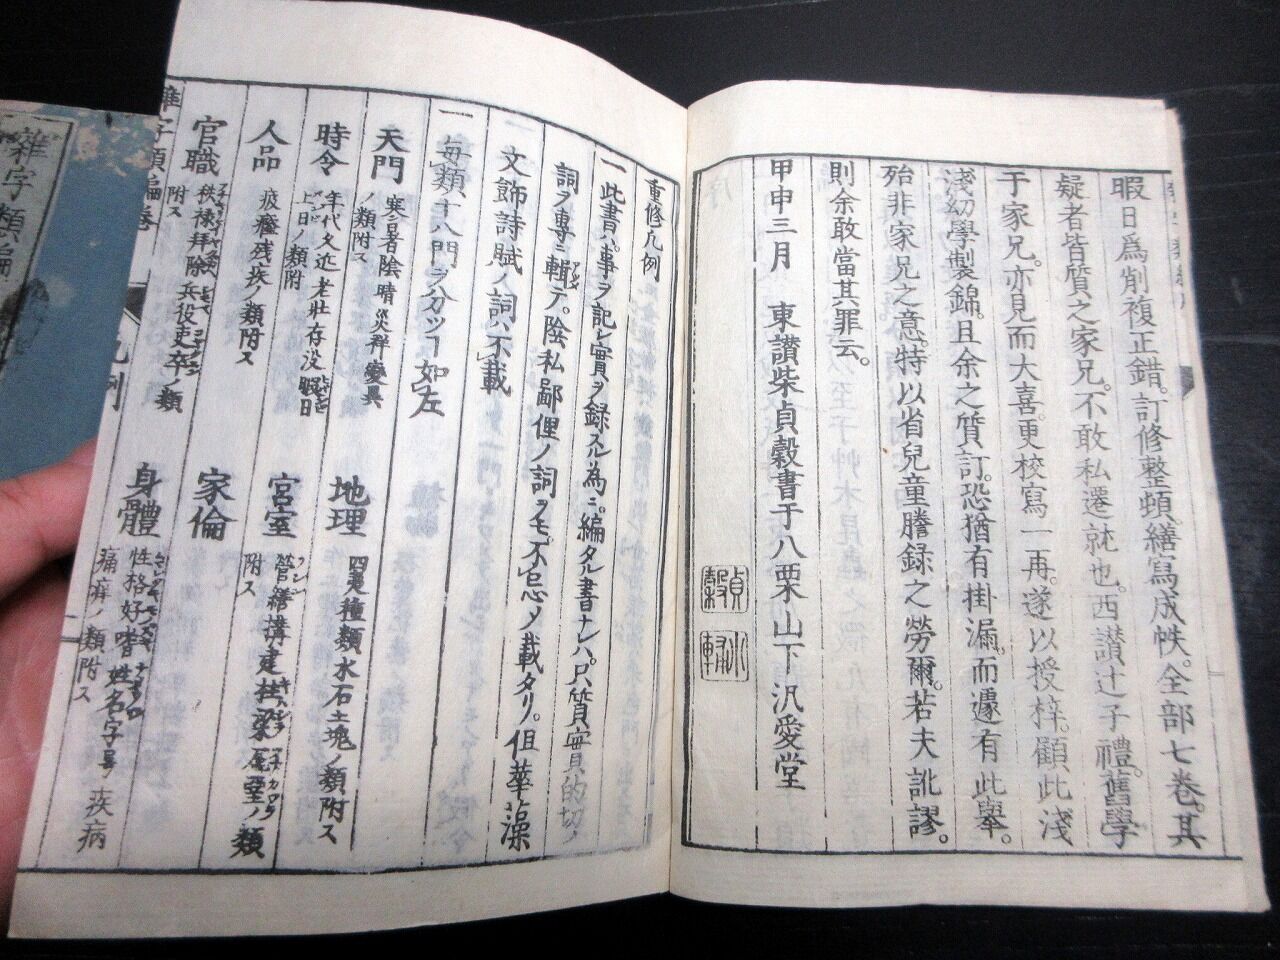 暇日爲削複正錯。訂修整頓。繕寫成帙。全部七卷。其
疑者皆質之家兄。不敢私遷就也。西讃辻子禮。舊學
于家兄。亦見而大喜。更校寫一再。遂以授梓。顧此淺
淺幼學製錦。且余之質訂。恐猶有掛漏。而遽有此舉。
殆非家兄之意。特以省兒童謄録之勞爾。若夫訛謬。
則余敢當其罪云。
甲申三月 東讃柴貞穀書于八栗山下汎愛堂
重修凡例
一此書ハ事ヲ記シ實ヲ録スル為ニ。編タル書ナレハ。只質實的切ノ
詞ヲ専ニ輯テ。陰私鄙俚ノ詞ヲモ。不忘メ載タリ。但華藻
文飾詩賦ノ詞ハ不載
一毎類十八門ヲ分ツヿ如左
天門 寒暑陰晴災祥變異ノ類附ス
地理 四夷種類水石土塊ノ類附ス
時令 年代久近老壯存没暇日上日ノ類附
宮室 營繕構建柱梁庵堂ノ類附ス
人品 疲癃残疾ノ類附ス
家倫
官職 秩禄拜除兵役吏卒ノ類附ス
身體 性格好嗜姓名字號ノ疾病痛痒ノ類附ス
雜字類編
凡例
雜字類編